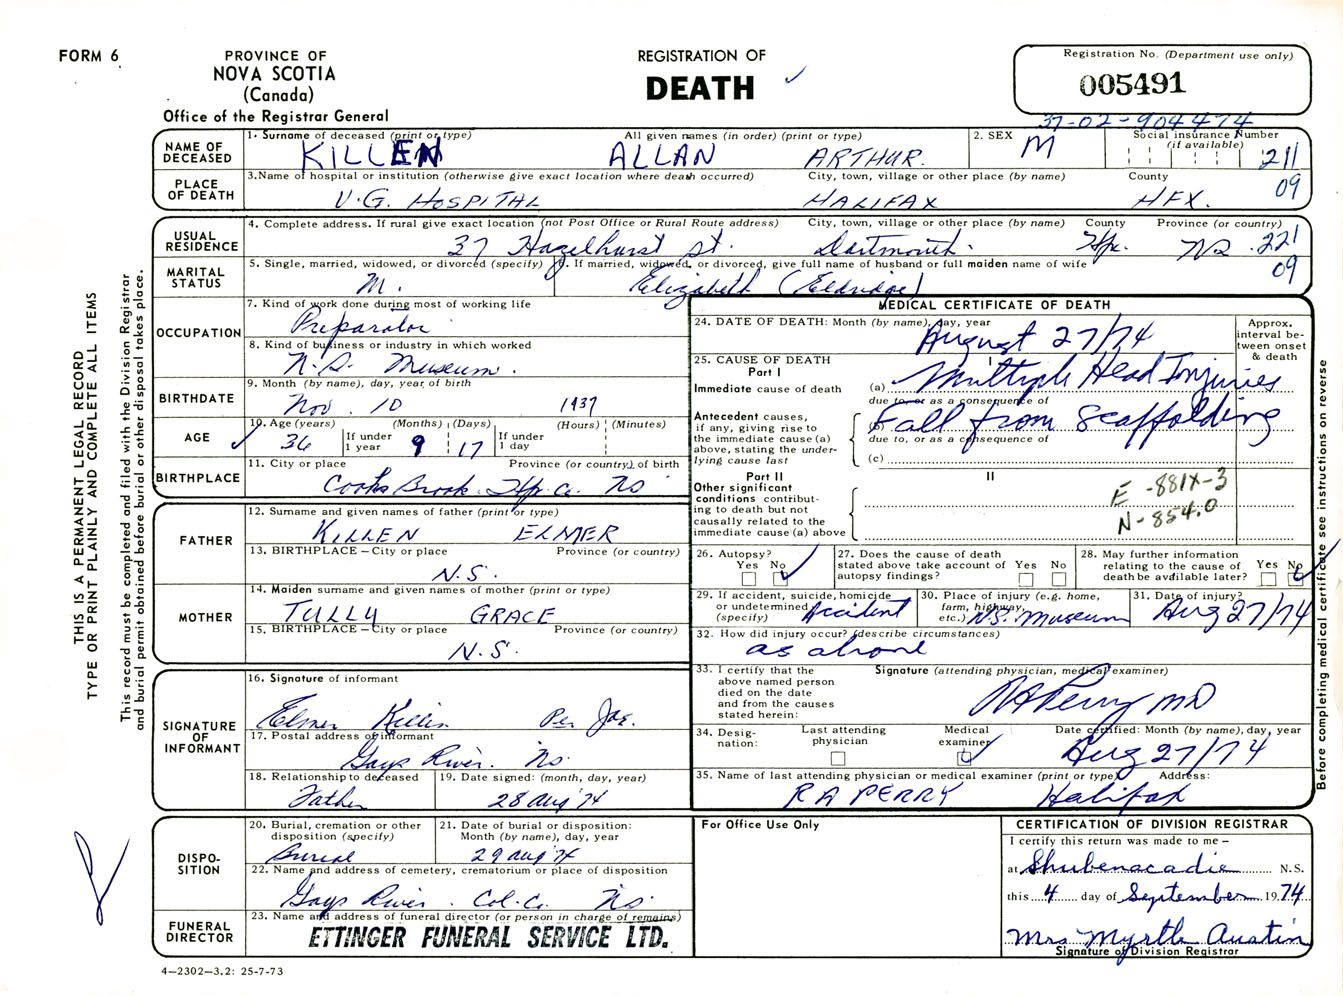 FORM 6
PROVINCE OF
NOVA SCOTIA
(Canada)
Office of the Registrar General
REGISTRATION OF
DEATH
Registration No. (Department use only)
005491
37-02-904474
NAME OF DECEASED
1. Surname of deceased (print or type) All given names (in order) (print or type)
KILLEN ALLAN ARTHUR.
2. SEX
M
Social insurance Number (if available)
211
09
PLACE OF DEATH
3. Name of hospital or institution (otherwise give exact location where death occurred) City, town, village or other place (by name) County
V.G. HOSPITAL HALIFAX HFX.
USUAL RESIDENCE
4. Complete address. If rural give exact location (not Post Office or Rural Route address) City, town, village or other place (by name) County Province (or country)
37 Hazelhurst St. Dartmouth. Hfx. NS 221
09
MARITAL STATUS
5. Single, married, widowed, or divorced (specify)
M.
6. If married, widowed, or divorced, give full name of husband or full maiden name of wife
Elizabeth (Eldridge)
OCCUPATION
7. Kind of work done during most of working life
Preparator
8. Kind of business or industry in which worked
N.S. Museum.
BIRTHDATE
9. Month (by name), day, year of birth
Nov. 10 1937
AGE
10. Age (years) If under 1 year (Months) (Days) If under 1 day (Hours) (Minutes)
36 9 17
BIRTHPLACE
11. City or place Province (or country) of birth
Cooks Brook. Hfx. Co. NS
FATHER
12. Surname and given names of father (print or type)
KILLEN ELMER
13. BIRTHPLACE – City or place Province (or country)
N.S.
MOTHER
14. Maiden surname and given names of mother (print or type)
TULLY GRACE
15. BIRTHPLACE – City or place Province (or country)
N.S.
SIGNATURE OF INFORMANT
16. Signature of informant
Elmer Killen Per
17. Postal address of informant
Gays River. NS.
18. Relationship to deceased
Father
19. Date signed: (month, day, year)
28 Aug '74
DISPO-
SITION
20. Burial, cremation or other disposition (specify)
Burial
21. Date of burial or disposition: Month (by name), day, year
29 Aug '74
22. Name and address of cemetery, crematorium or place of disposition
Gays River. Col. Co. NS.
FUNERAL DIRECTOR
23. Name and address of funeral director (or person in charge of remains)
ETTINGER FUNERAL SERVICE LTD.
4—2302—3.2: 25-7-73
MEDICAL CERTIFICATE OF DEATH
24. DATE OF DEATH: Month (by name), day, year
August 27/74
Approx. interval be-
tween onset & death
25. CAUSE OF DEATH
Part I
I
Immediate cause of death
(a) Multiple Head Injuries
due to, or as a consequence of
Antecedent causes, if any, giving rise to the immediate cause (a) above, stating the under-
lying cause last
(b) Fall from Scaffolding
due to, or as a consequence of
(c)
Part II
II
Other significant conditions contribut-
ing to death but not causally related to the immediate cause (a) above
E -881X-3
N-854.0
26. Autopsy?
Yes No
27. Does the cause of death stated above take account of autopsy findings?
Yes No
28. May further information relating to the cause of death be available later?
Yes No
29. If accident, suicide, homicide or undetermined (specify)
Accident
30. Place of injury (e.g. home, farm, highway, etc.)
N.S. Museum
31. Date of injury?
Aug 27/74
32. How did injury occur? (describe circumstances)
as above
33. I certify that the above named person died on the date and from the causes stated herein:
Signature (attending physician, medical examiner)
RA Perry MD
34. Desig-
nation:
Last attending physician
Medical examiner
Date certified: Month (by name), day, year
Aug 27/74
35. Name of last attending physician or medical examiner (print or type) Address:
RA PERRY Halifax
For Office Use Only
CERTIFICATION OF DIVISION REGISTRAR
I certify this return was made to me –
at Shubenacadie N.S.
this 4 day of September 1974
Mrs Myrtle Austin
Signature of Division Registrar
THIS IS A PERMANENT LEGAL RECORD
TYPE OR PRINT PLAINLY AND COMPLETE ALL ITEMS
This record must be completed and filed with the Division Registrar
and burial permit obtained before burial or other disposal takes place.
Before completing medical certificate see instructions on reverse